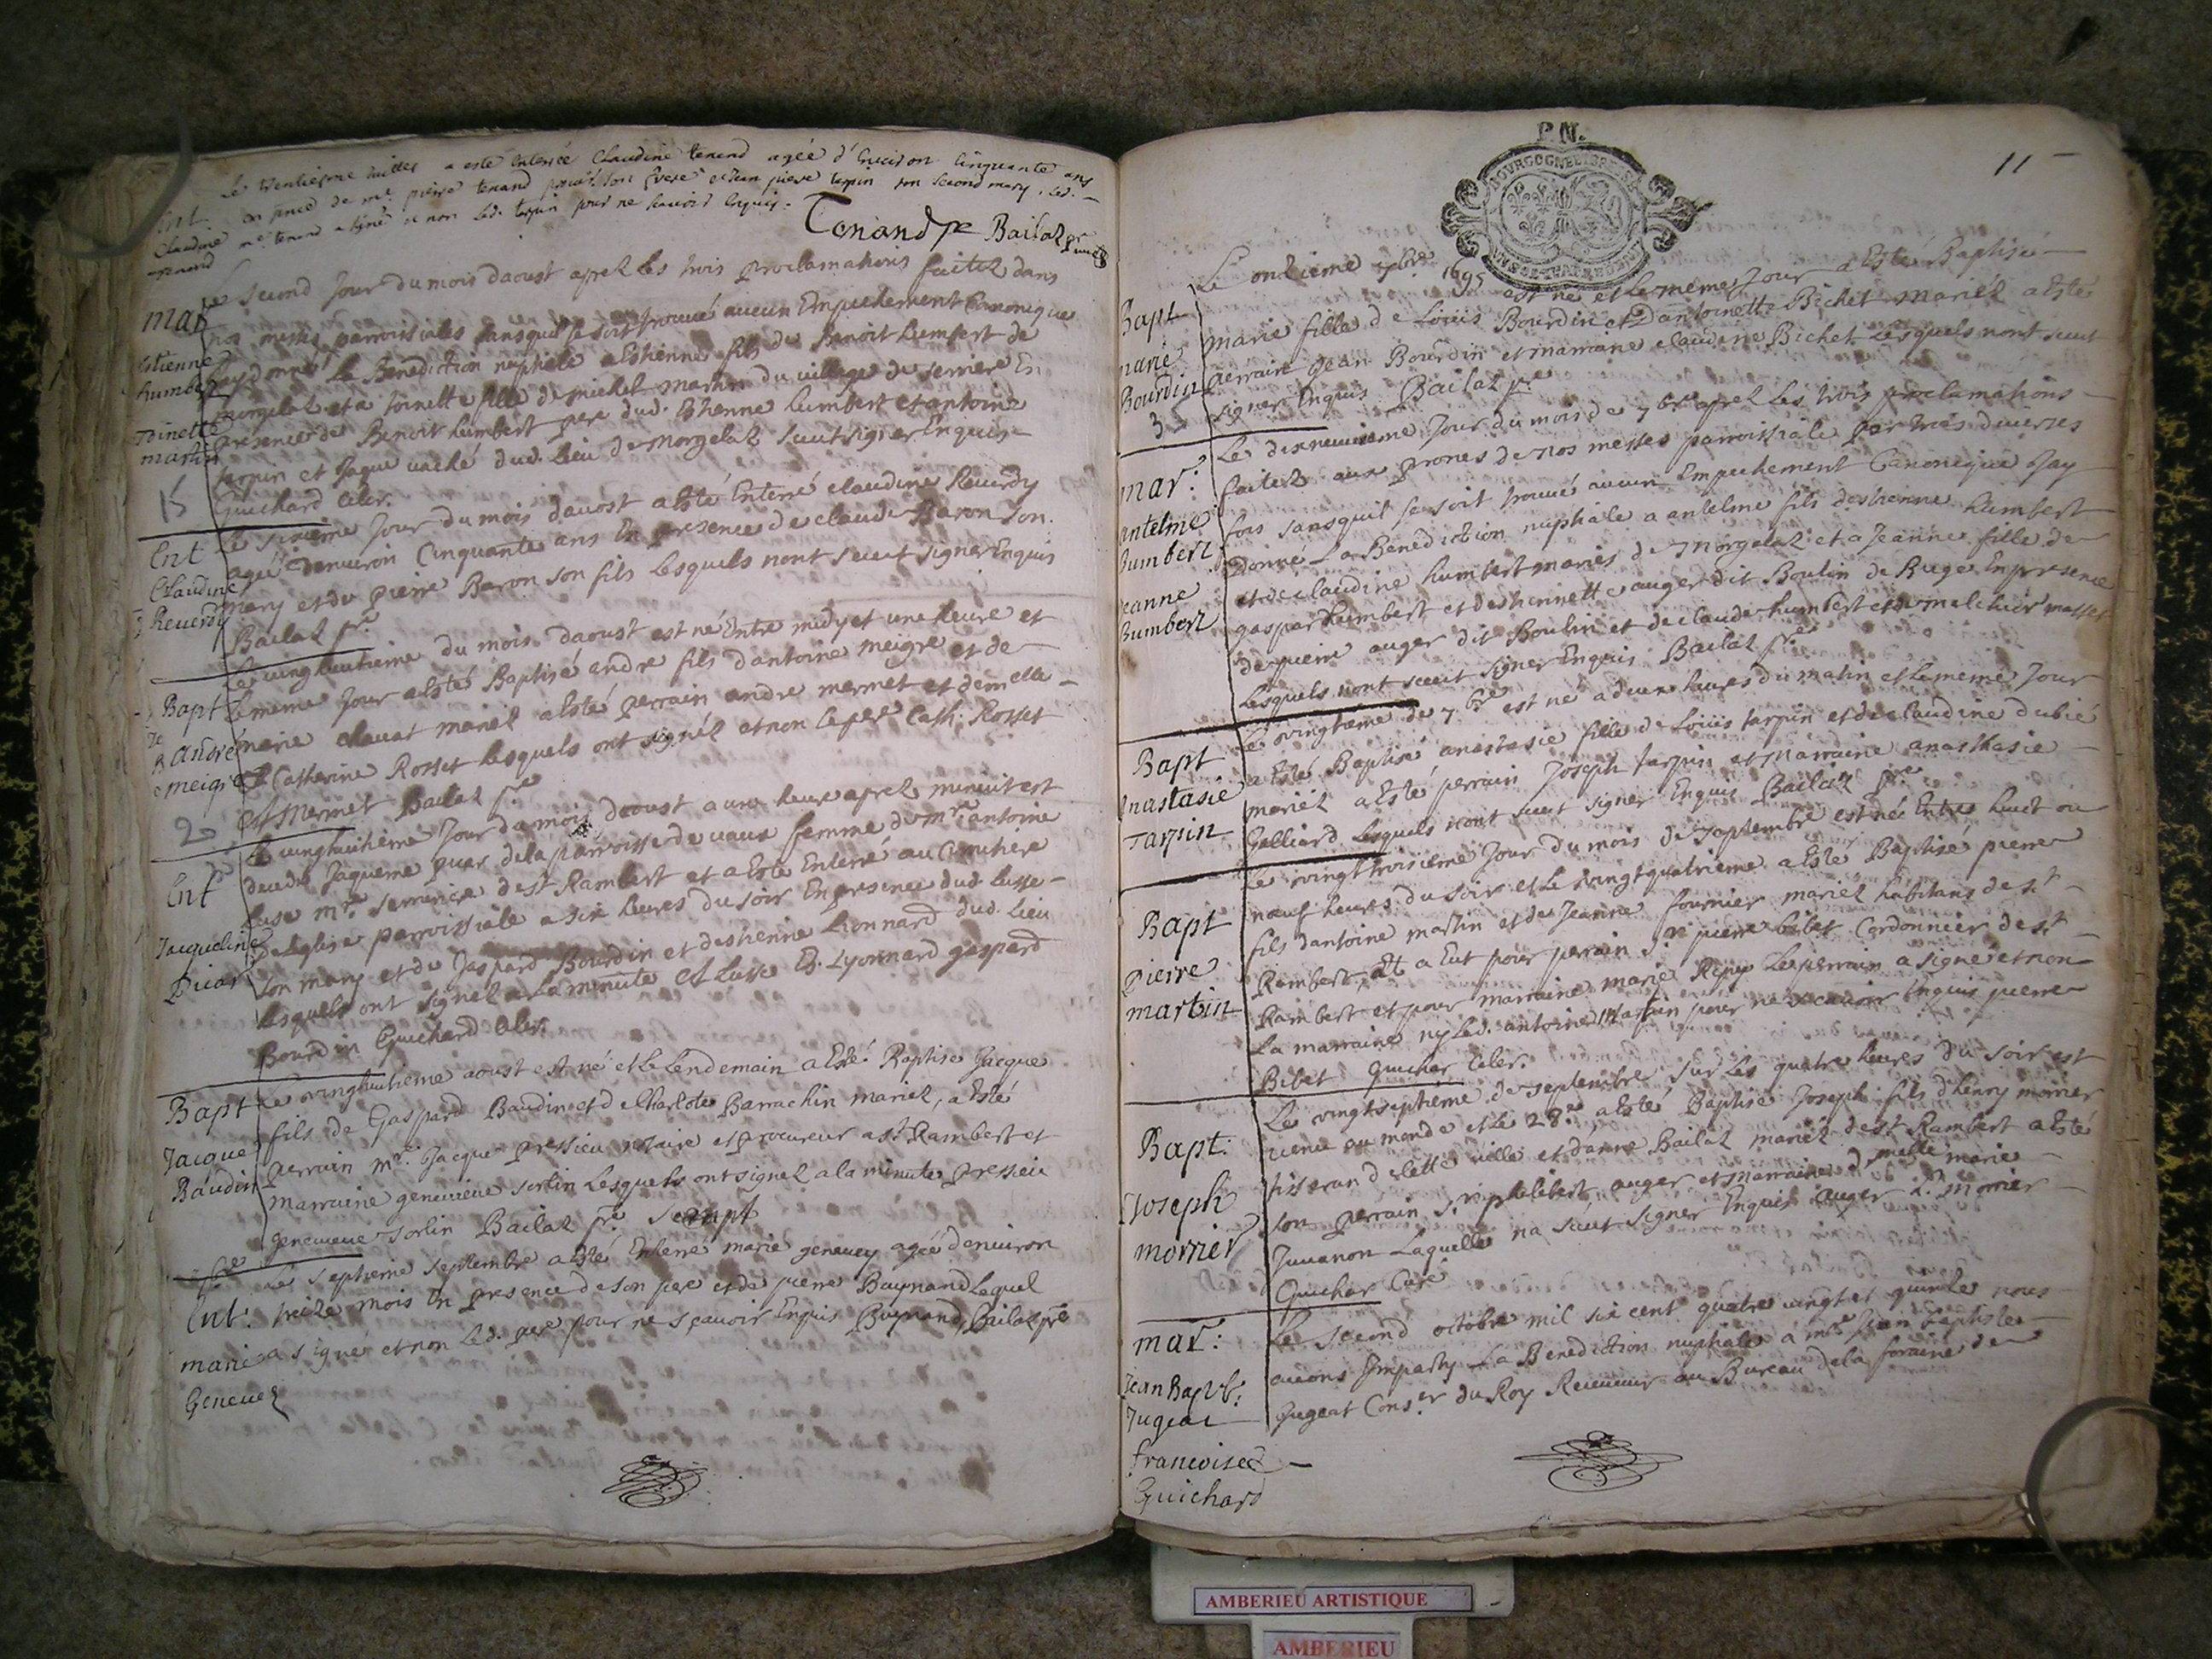 le trentiesme Juillet a esté enterrée Claudine tenand agée d'environ Cinquante ans
Ent. en pnce de mre. pierre tenand son frere et Jean piere tarpin son second mary, led.
Claudine mre. tenand a signé et non led. tarpin pour ne scavoir enquis.
tenand
Tenand pre Bailat pre
Le second Jour du mois daoust apret les trois proclamations faitez dans
mar nos messes parroissiales sansquil se soit trouvé aucun Empechement Canonique
Estienne Jay donné La Benediction nuptiale a Estienne fils de Benoit humbert de
humbert morgelat et a toinette fille de michel martin du village de serriere En
Toinette presence de Benoit humbert pere dud. Estienne humbert et antoine
martin tarpin et Jaque vaché dud. Lieu de Morgelaz sceut signer Enquis
15 Guichard Cler.
Ent Le sixieme Jour du mois daoust a Esté Enterré claudine Reverdy
Claudine agée denviron Cinquante ans En presence de claude Baron son
Reverdy mary et de pierre Baron son fils Lesquels nont sceut signer Enquis
Bailat pre
Le vinghuitieme du mois daoust est né Entre midy et une heure et
Bapt Le meme Jour a Esté Baptisé andre fils dantoine meigre et de
André marie chavat mariez a Esté perrain andre mermet et demelle
meigre Catherine Rosset Lesquels ont signéz et non le pere Cath. Rosset
2 A Mermet Bailat pre
Le vinghuitieme Jour du mois daoust a une heure apret minuit est
Ent decedé Jaqueme picar dela parroisse de vaux femme de mre antoine
Lusse mre serrurier de st Rambert et a Esté Enterré au Cimitiere
Jacqueline de Leglise parroissiale a six heures du soir En presence dud Lusse
Picar son mary et de Jaspard Bourdin et destienne Lionnard dud. Lieu
Lesquels ont signez a la minute A Lusse E. Lyonnard gaspard
Bourdin Guichard Cler.
Bapt Le vinghuitieme aoust est né et Le Lendemain a Esté Baptisé Jacque
Jacque fils de Gaspard Baudin et de Charlote Barrachin mariez, a Esté
Baudin perrain mre. Jacque pressieu notaire et procureur a st Rambert et
marraine genevieve sorlin Lesquels ont signez a la minute pressieu
genevieve sorlin Bailat pre
7bre Le septieme septembre a Esté Enterré marie genevey agée denviron
Ent: treize mois En presence de son pere et de pierre Buynand Lequel
marie a signé et non Led. pere pour ne sçavoir Enquis Buynand, Bailat pre
Genevey
P.N.
11
Le onzieme 7bre 1695 est né et Le meme Jour a Esté Baptisé
Bapt marie fille de Loüis Bourdin et dantoinette Bichet mariéz a Esté
marie perrain Jean Bourdin et marraine claudine Bichet Lesquels nont sceut
Bourdin signer Enquis Bailat pre
3
Le dixneuvieme Jour du mois de 7bre apret Les trois proclamations
mar: faitez aux prones de nos messes parroissiale par trois diverses
antelme fois sansquil se soit trouvé aucun Empechement Canonique Jay
humbert Donné La Benediction nuptiale a antelme fils destienne humbert
et de claudine humbert mariés de Morgelaz et a Jeanne fille de
Jeanne gaspar humbert et destiennette auger dit Boulin de Ruge En presence
humbert de pierre auger dit Boulin et de claude humbert et de melchior masset
Lesquels nont sceut signer Enquis Bailat pre
Le vingtieme de 7bre est né a deux heures du matin et Le meme Jour
Bapt a Esté Baptisé anastasie fille de Loüis tarpin et de claudine dubié
Anastasie mariéz a Esté perrain Joseph tarpin et Marraine anasthasie
Tarpin Galliard Lesquels nont sceut signer Enquis Bailat pre
Le vingt troisieme Jour du mois de septembre est né Entre huict ou
Bapt neuf heures du soir et Le vingtquatrieme a Esté Baptisé pierre
Pierre fils dantoine martin et de Jeanne fournier mariéz habitans de st
martin Rambert, et a Eut pour perrain sr. pierre bibet Cordonnier de st
Rambert et pour marraine marie Repey Le perrain a signé et non
La marraine ny Led. antoine Martin pour ne sçavoir Enquis pierre
Bibet Guichar Cler.
Le vingtseptieme de septembre sur Les quatre heures du soir est
Bapt: venu au monde et Le 28e a Esté Baptisé Joseph fils d'henry morrier
Joseph tisserand de Cette ville et danne Bailat mariéz de st Rambert a Esté
morrier son perrain sr. philibert auger et Marraine dmelle marie
Juvanon Laquelle na sceut signer Enquis auger h. Morrier
Guichar Curé
mar: Le second octobre mil six cent quatre vingt et quinze nous
avons Imparty La Benediction nuptiale a mre Jean baptiste
Jean Bapt: Jugeat Conser du Roy Receveur au Bureau de la foraine de
Jugeat
francoise
Guichard
AMBERIEU ARTISTIQUE
AMBERIEU